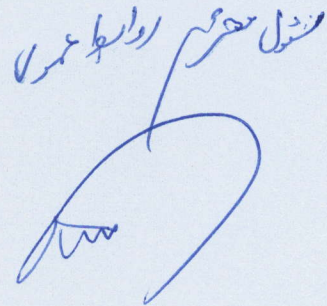 مسئول محترم روابط عمومی